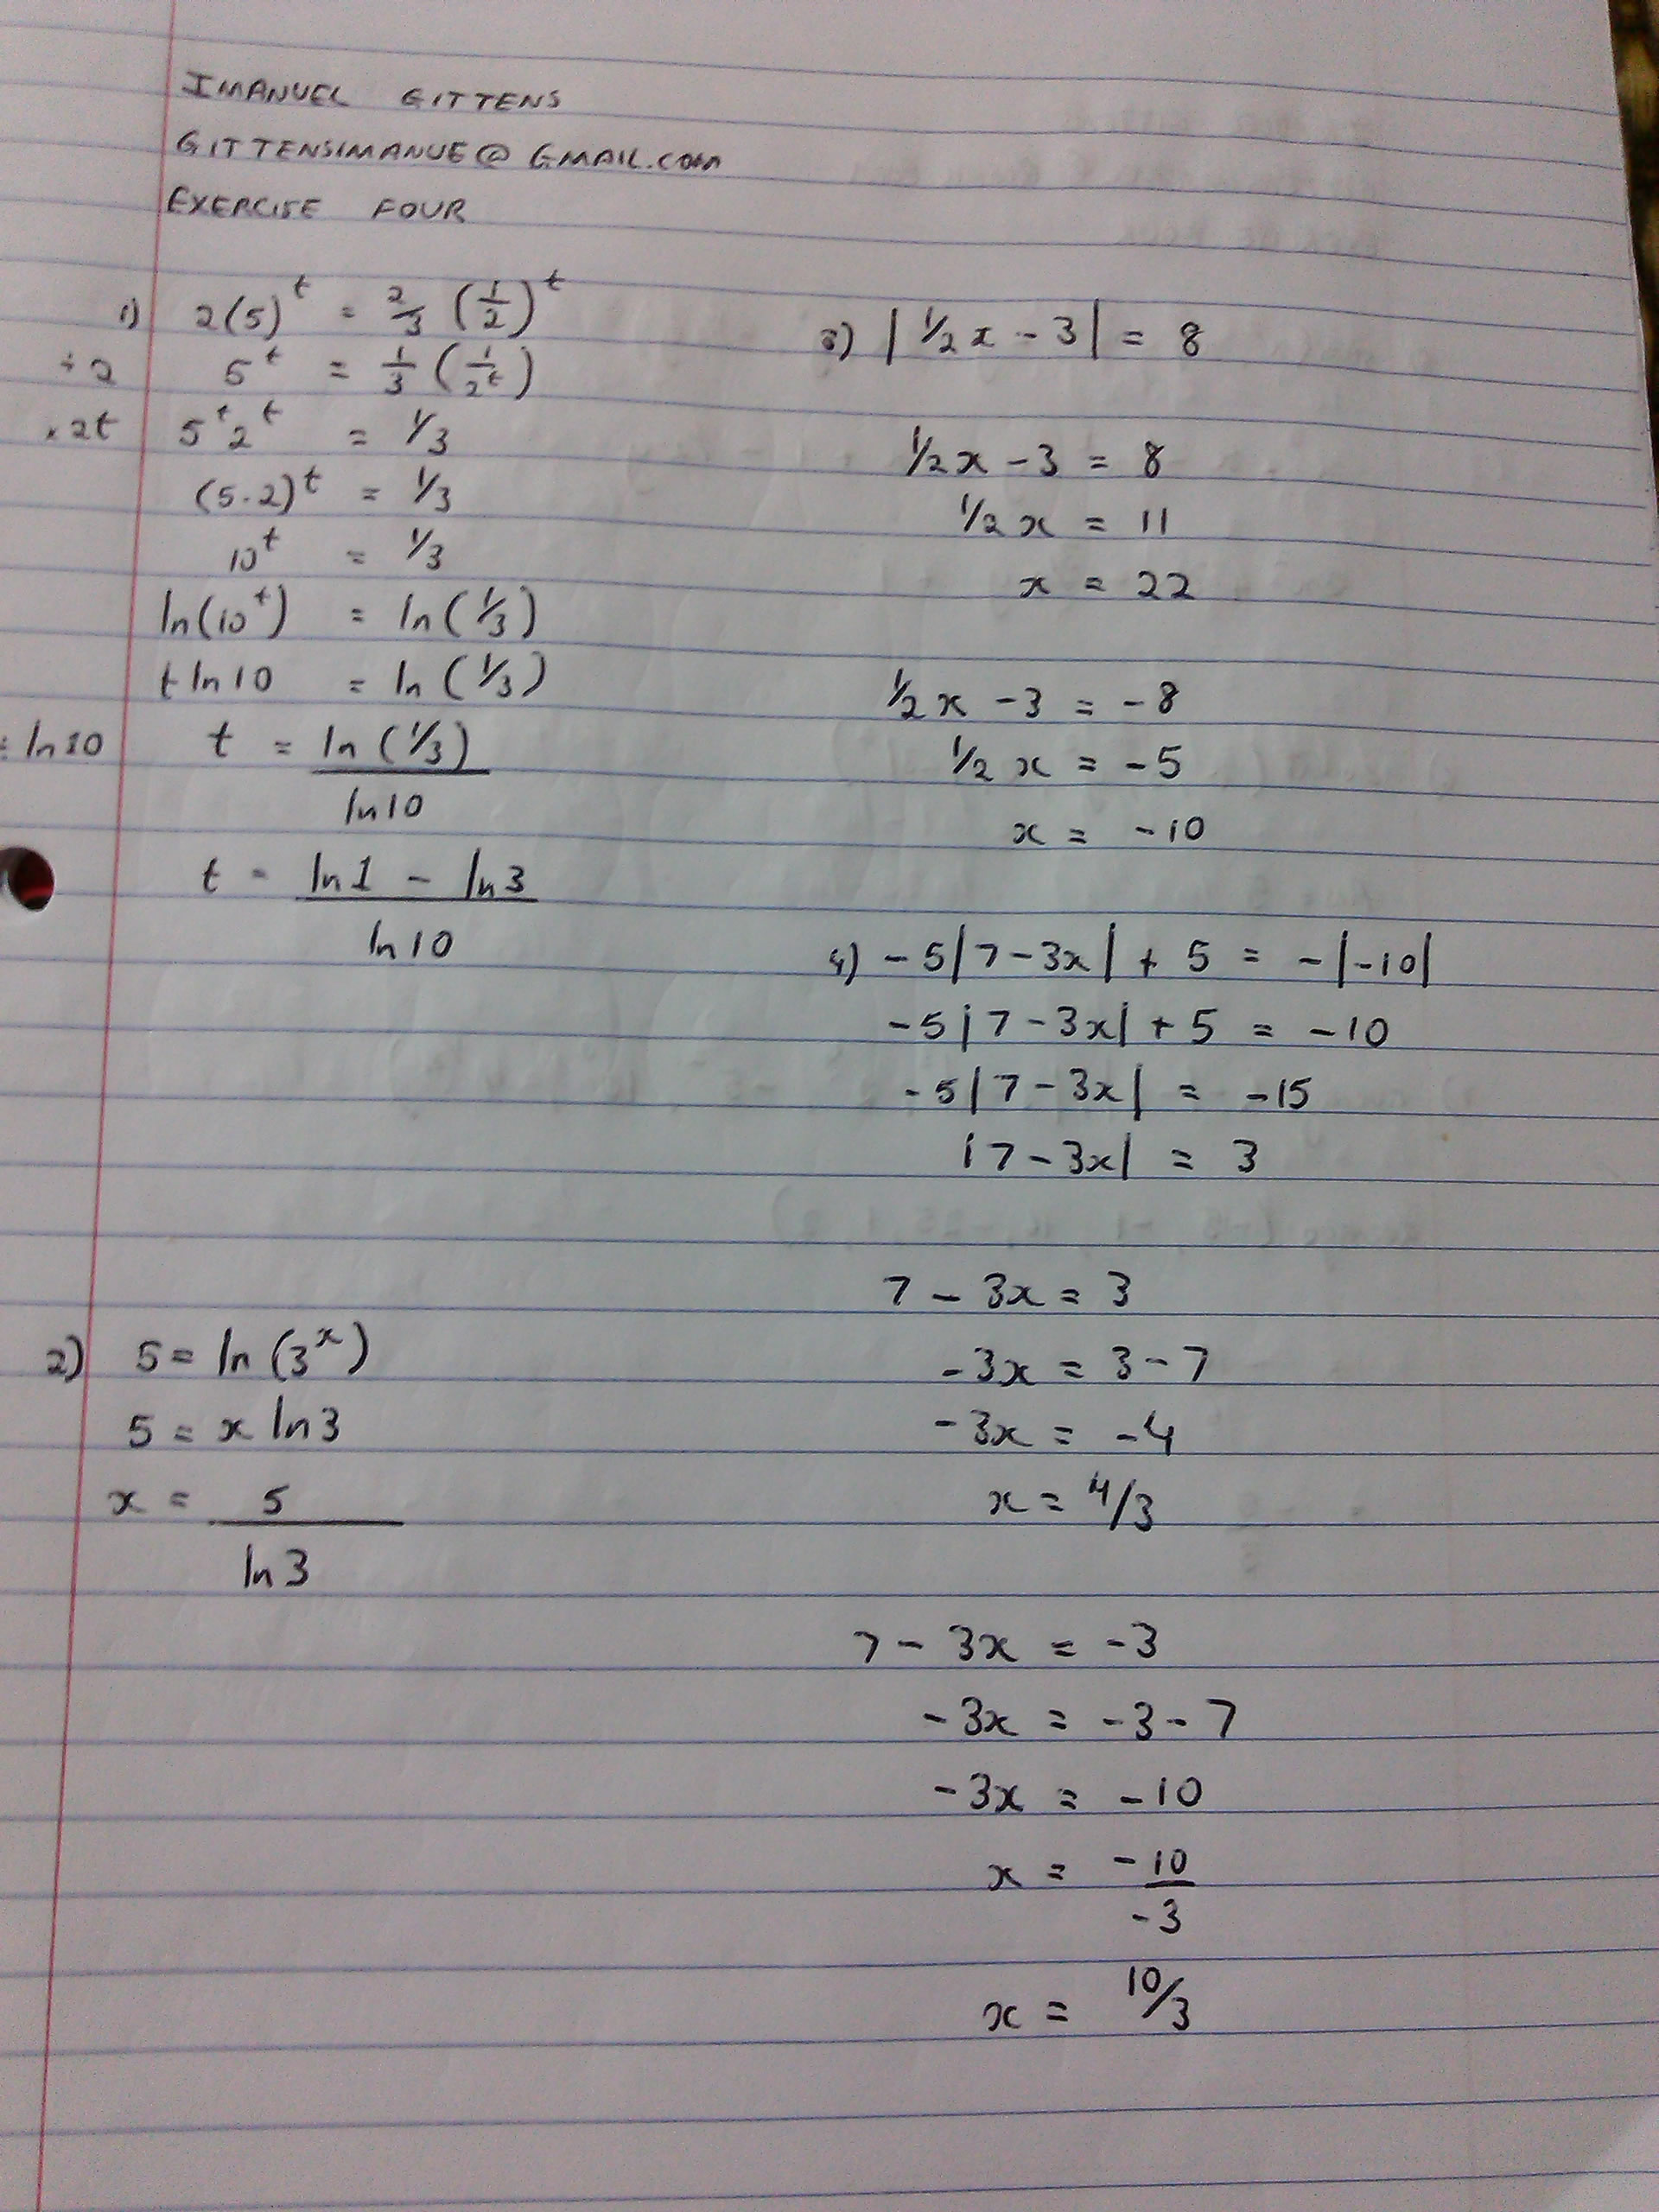 IMANUEL GITTENS
GITTENSIMANUE@GMAIL.COM
EXERCISE FOUR
1) 2(5)^t = 2/3 (1/2)^t
÷2 5^t = 1/3 (1/2^t)
×2t 5^t2^t = 1/3
(5.2)^t = 1/3
10^t = 1/3
ln(10^t) = ln(1/3)
t ln10 = ln(1/3)
÷ ln10 t = ln(1/3) / ln10
t = ln1 - ln3 / ln10
2) 5 = ln(3^x)
5 = x ln3
x = 5 / ln3
3) |1/2x - 3| = 8
1/2x - 3 = 8
1/2x = 11
x = 22
1/2x - 3 = -8
1/2x = -5
x = -10
4) -5|7-3x| + 5 = -|-10|
-5|7-3x| + 5 = -10
-5|7-3x| = -15
|7-3x| = 3
7 - 3x = 3
-3x = 3-7
-3x = -4
x = 4/3
7 - 3x = -3
-3x = -3-7
-3x = -10
x = -10/-3
x = 10/3